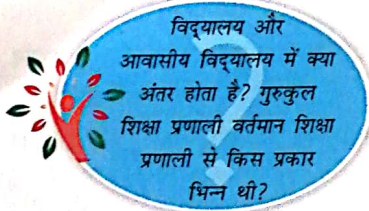 विद्यालय और
आवासीय विद्यालय में क्या
अंतर होता है? गुरुकुल
शिक्षा प्रणाली वर्तमान शिक्षा
प्रणाली से किस प्रकार
भिन्न थी?